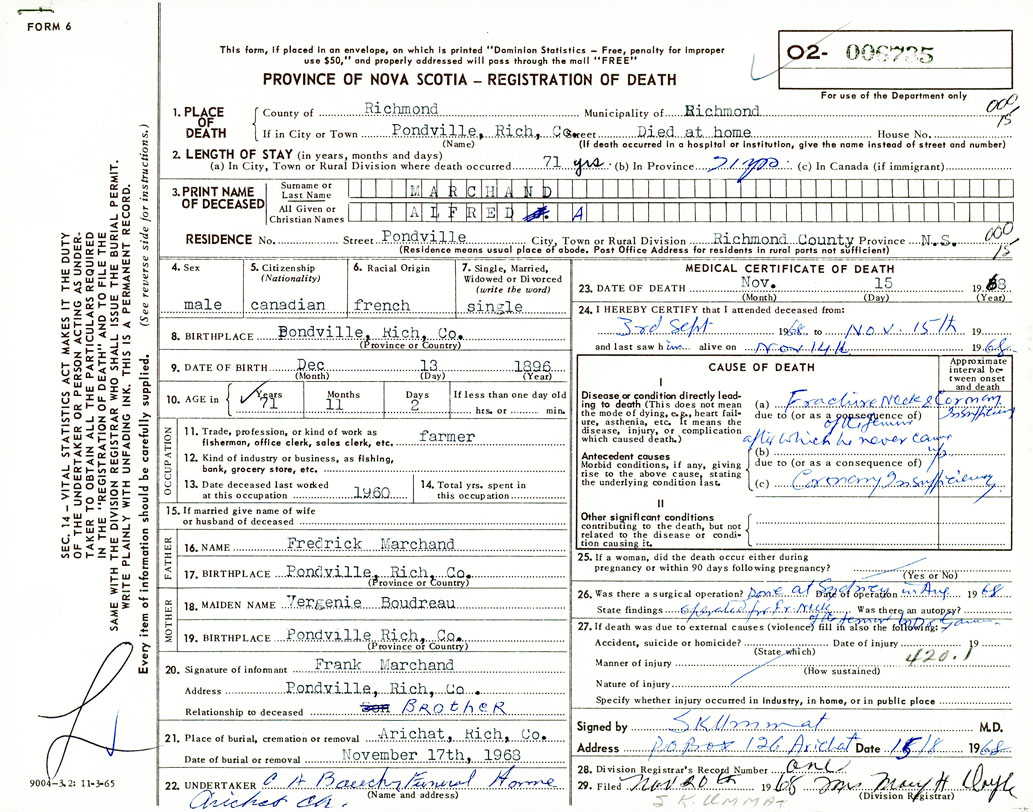 FORM 6
This form, if placed in an envelope, on which is printed "Dominion Statistics – Free, penalty for improper
use $50," and properly addressed will pass through the mail "FREE"
PROVINCE OF NOVA SCOTIA – REGISTRATION OF DEATH
02- 006735
For use of the Department only
000
15
1. PLACE OF DEATH County of Richmond Municipality of Richmond
If in City or Town Pondville, Rich, Co. Street Died at home House No.
(Name) (If death occurred in a hospital or institution, give the name instead of street and number)
2. LENGTH OF STAY (in years, months and days)
(a) In City, Town or Rural Division where death occurred 71 yrs. (b) In Province 71 yrs. (c) In Canada (if immigrant)
3. PRINT NAME OF DECEASED Surname or Last Name MARCHAND
All Given or Christian Names ALFRED A
RESIDENCE No. Street Pondville City, Town or Rural Division Richmond County Province N.S.
(Residence means usual place of abode. Post Office Address for residents in rural parts not sufficient)
000
15
4. Sex male
5. Citizenship (Nationality) canadian
6. Racial Origin french
7. Single, Married, Widowed or Divorced (write the word) single
8. BIRTHPLACE Pondville, Rich, Co.
(Province or Country)
9. DATE OF BIRTH Dec 13 1896
(Month) (Day) (Year)
10. AGE in Years 71 Months 11 Days 2 If less than one day old hrs. or min.
OCCUPATION
11. Trade, profession, or kind of work as fisherman, office clerk, sales clerk, etc. farmer
12. Kind of industry or business, as fishing, bank, grocery store, etc.
13. Date deceased last worked at this occupation 1960
14. Total yrs. spent in this occupation
15. If married give name of wife or husband of deceased
FATHER
16. NAME Fredrick Marchand
17. BIRTHPLACE Pondville, Rich, Co.
(Province or Country)
MOTHER
18. MAIDEN NAME Vergenie Boudreau
19. BIRTHPLACE Pondville Rich, Co.
(Province or Country)
20. Signature of informant Frank Marchand
Address Pondville, Rich, Co.
Relationship to deceased Son BROTHER
21. Place of burial, cremation or removal Arichat, Rich, Co.
Date of burial or removal November 17th, 1968
22. UNDERTAKER C H Funeral Home
(Name and address)
Arichat
MEDICAL CERTIFICATE OF DEATH
23. DATE OF DEATH Nov. 15 1968
(Month) (Day) (Year)
24. I HEREBY CERTIFY that I attended deceased from:
3rd Sept 1968 to Nov. 15th 19
and last saw him alive on Nov 14th 1968
CAUSE OF DEATH
Approximate interval between onset and death
I
Disease or condition directly leading to death (This does not mean the mode of dying, e.g., heart failure, asthenia, etc. It means the disease, injury, or complication which caused death.)
(a) Fracture Neck Coronary Insufficiency
due to (or as a consequence of)
of the femur
after which he never came up
Antecedent causes
Morbid conditions, if any, giving rise to the above cause, stating the underlying condition last.
(b)
due to (or as a consequence of)
(c) Coronary Insufficiency
II
Other significant conditions contributing to the death, but not related to the disease or condition causing it.
25. If a woman, did the death occur either during pregnancy or within 90 days following pregnancy?
(Yes or No)
26. Was there a surgical operation? Done at Sydney Date of operation in Aug 1968
State findings Operated for Fr. Neck of the femur Was there an autopsy?
27. If death was due to external causes (violence) fill in also the following:
Accident, suicide or homicide? Date of injury 19
(State which)
420.1
Manner of injury
(How sustained)
Nature of injury
Specify whether injury occurred in Industry, in home, or in public place
Signed by S K Ummat M.D.
Address P.O Box 126 Arichat Date 15/8 1968
28. Division Registrar's Record Number One
29. Filed Nov 20th 1968 Mrs Mary H Doyle
(Division Registrar)
S K UMMAT
SEC. 14 – VITAL STATISTICS ACT MAKES IT THE DUTY
OF THE UNDERTAKER OR PERSON ACTING AS UNDER-
TAKER TO OBTAIN ALL THE PARTICULARS REQUIRED
IN THE "REGISTRATION OF DEATH" AND TO FILE THE
SAME WITH THE DIVISION REGISTRAR WHO SHALL ISSUE THE BURIAL PERMIT.
WRITE PLAINLY WITH UNFADING INK. THIS IS A PERMANENT RECORD.
Every item of information should be carefully supplied. (See reverse side for instructions.)
9004-3.2: 11-3-65